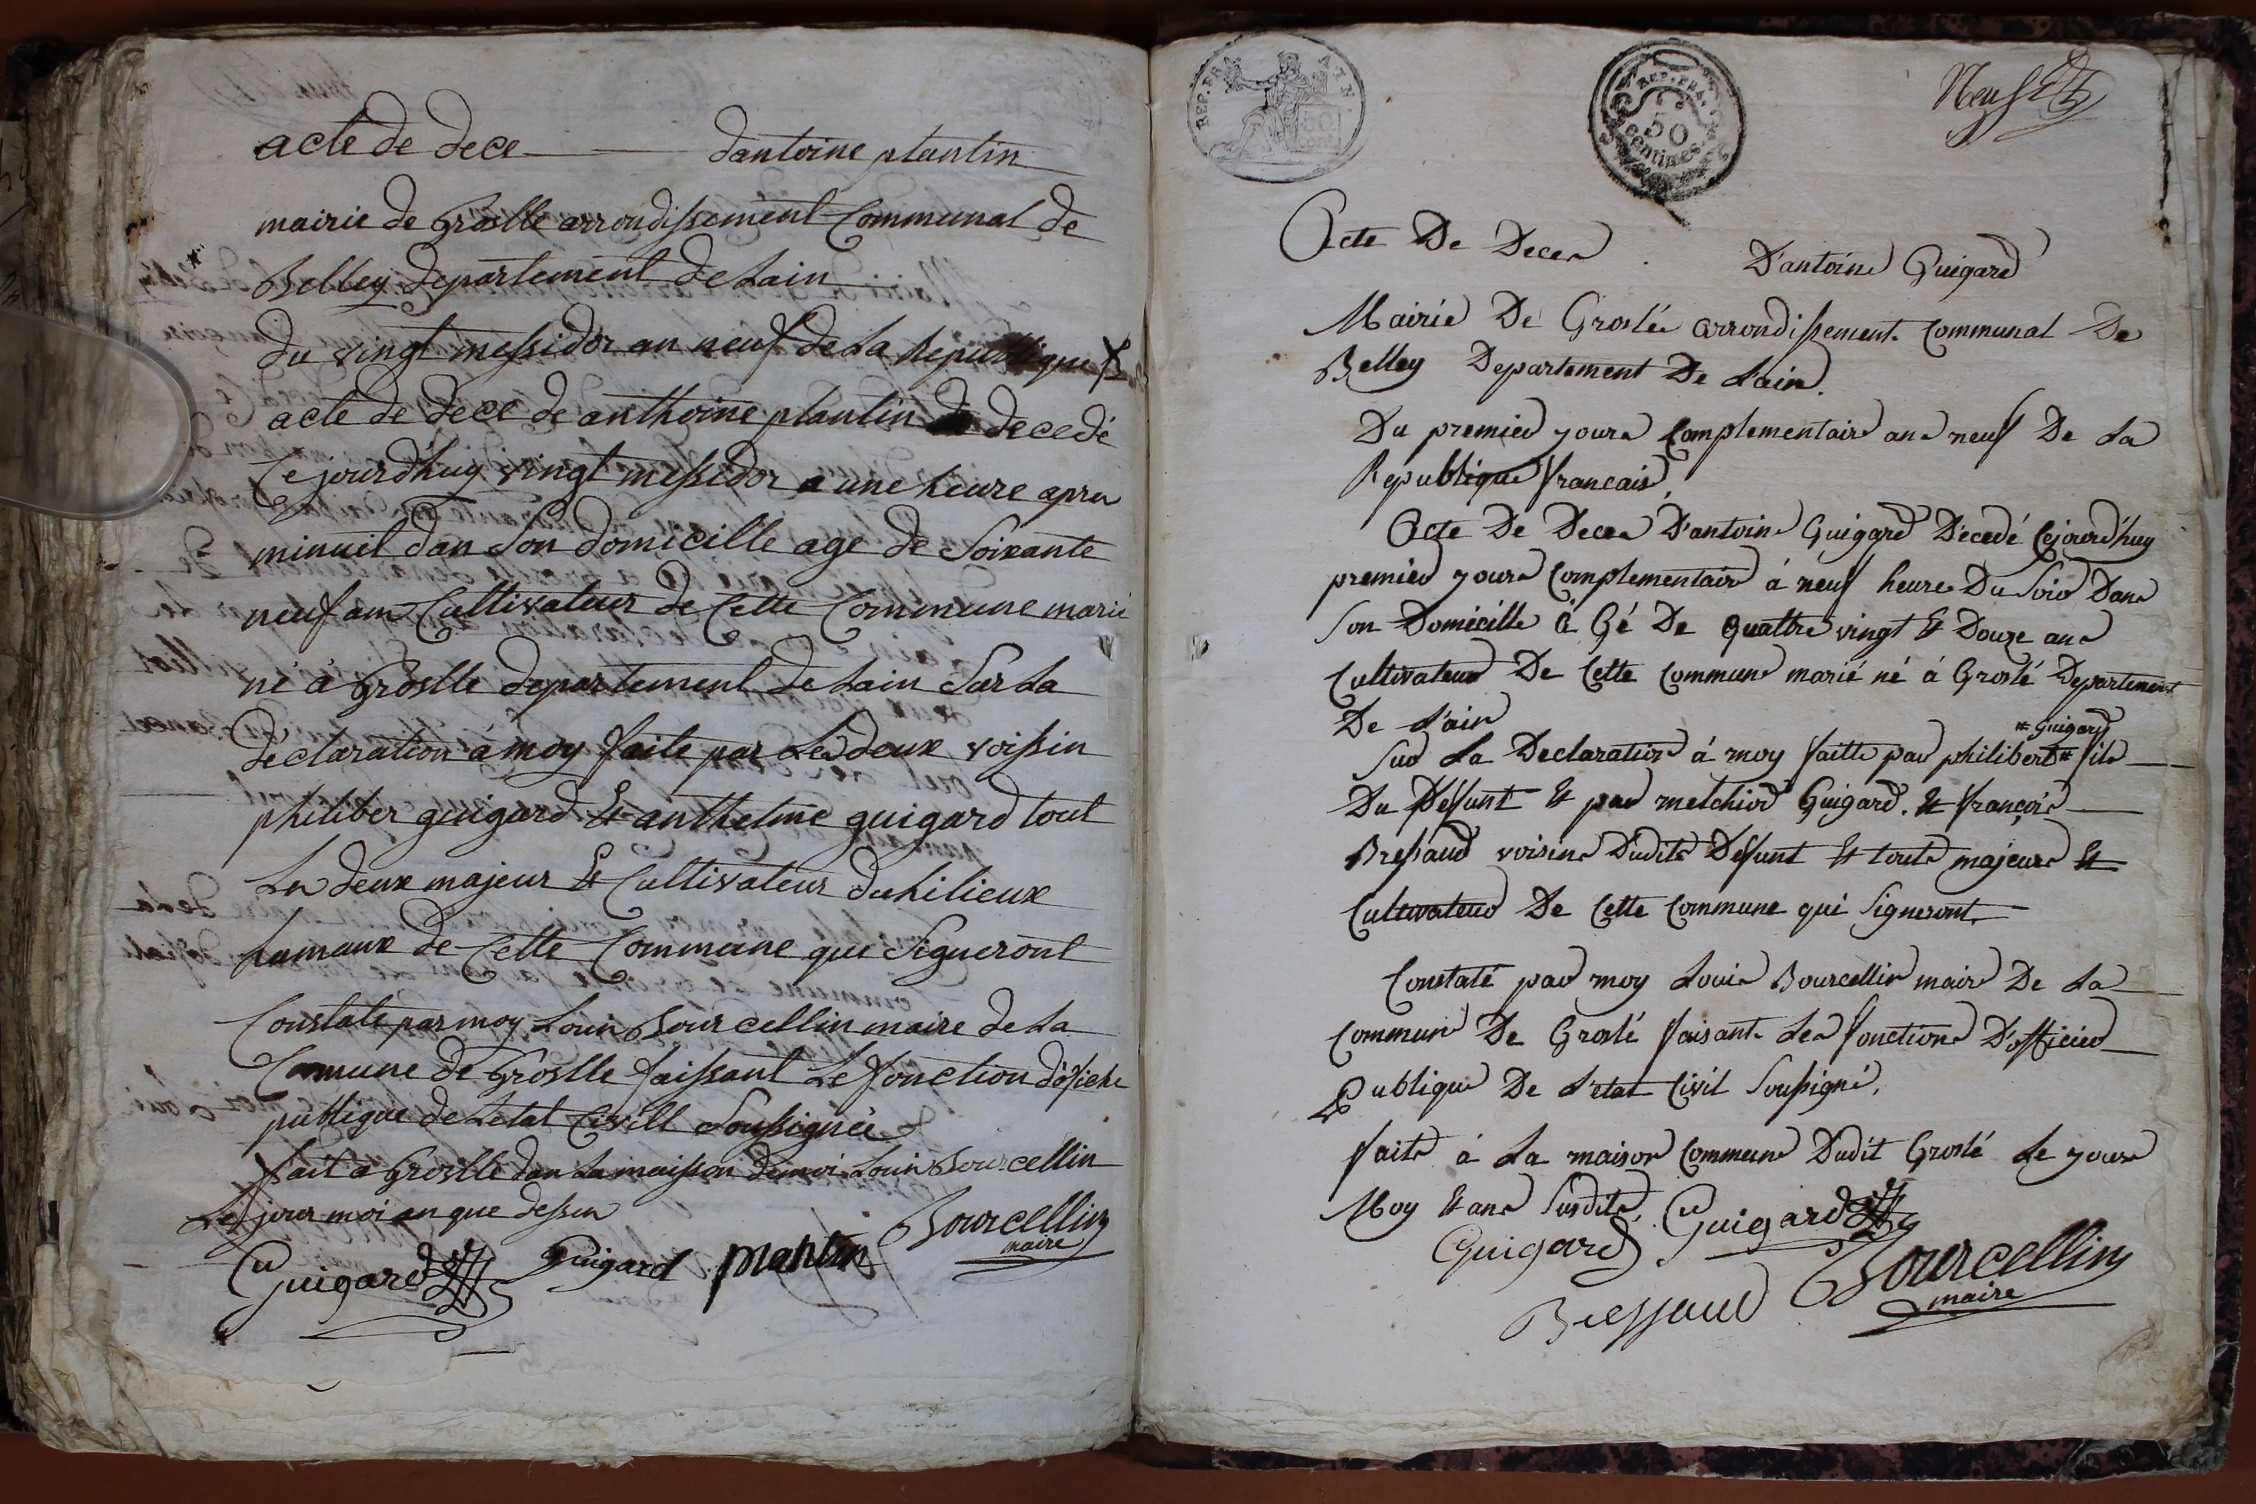 acte de dece dantoine plantin
mairie de Groslle arrondissement Communal de
Belley departement de Lain
du vingt messidor an neuf de La Republique f
acte de dece de anthoine plantin decedé
Ce jourd'huy vingt messidor a une heure apres
minuil dan Son domicille age de Soixante
neuf ans Cultivateur de Cette Commune marié
né à Groslle departement de Lain Sur La
déclaration à moy faite par Les deux voissin
philiber guigard Et anthelme guigard tout
Les deux majeur Et Cultivateur du hilieux
hamaux de Cette Commune que Signeront
Constate par moy Louis Bourcellin maire de La
Commune de Groslle faissant Le fonction d'ofiche
publique de Letat Civill Soussignéé
fait a Groslle dan La maisson de moi Louis Bourcellin
Les jour moi an que dessus
Guigard Guigard plantin Bourcellin
maire
REP. FRA. 50 cent. A.T.N.
REP. FRA. 50 centimes
Neuf
Acte De Deces D'antoine Guigard
Mairie De Groslée arrondissement Communal De
Belley Departement De L'ain.
Du premier jours Complementaire ans neuf De La
Republique francais
Acte De Deces D'antoine Guigard Décedé Cejourd'huy
premier jours Complementaire à neuf heures Du Soir Dans
Son Domicille À Gé De quattre vingt Et Douze ans
Cultivateur De Cette Commune marié né à Groslé Departement
De L'ain
# Guigard
Sur La Declaration à moy faitte par philibert # fils
Du Défunt Et par melchior Guigard. Et françois
Bressaud voisins Dudits Defunt Et touts majeurs Et
Cultivateur De Cette Commune qui Signeront.
Constaté par moy Louis Bourcellin maire De La
Commune De Groslé faisant Les fonctions D'officier
Publique De L'etat Civil Soussigné,
faits à La maison Commune Dudit Groslé Le jours
Moy Et ans Susdits,
Guigard Guigard
Bressaud Bourcellin
maire